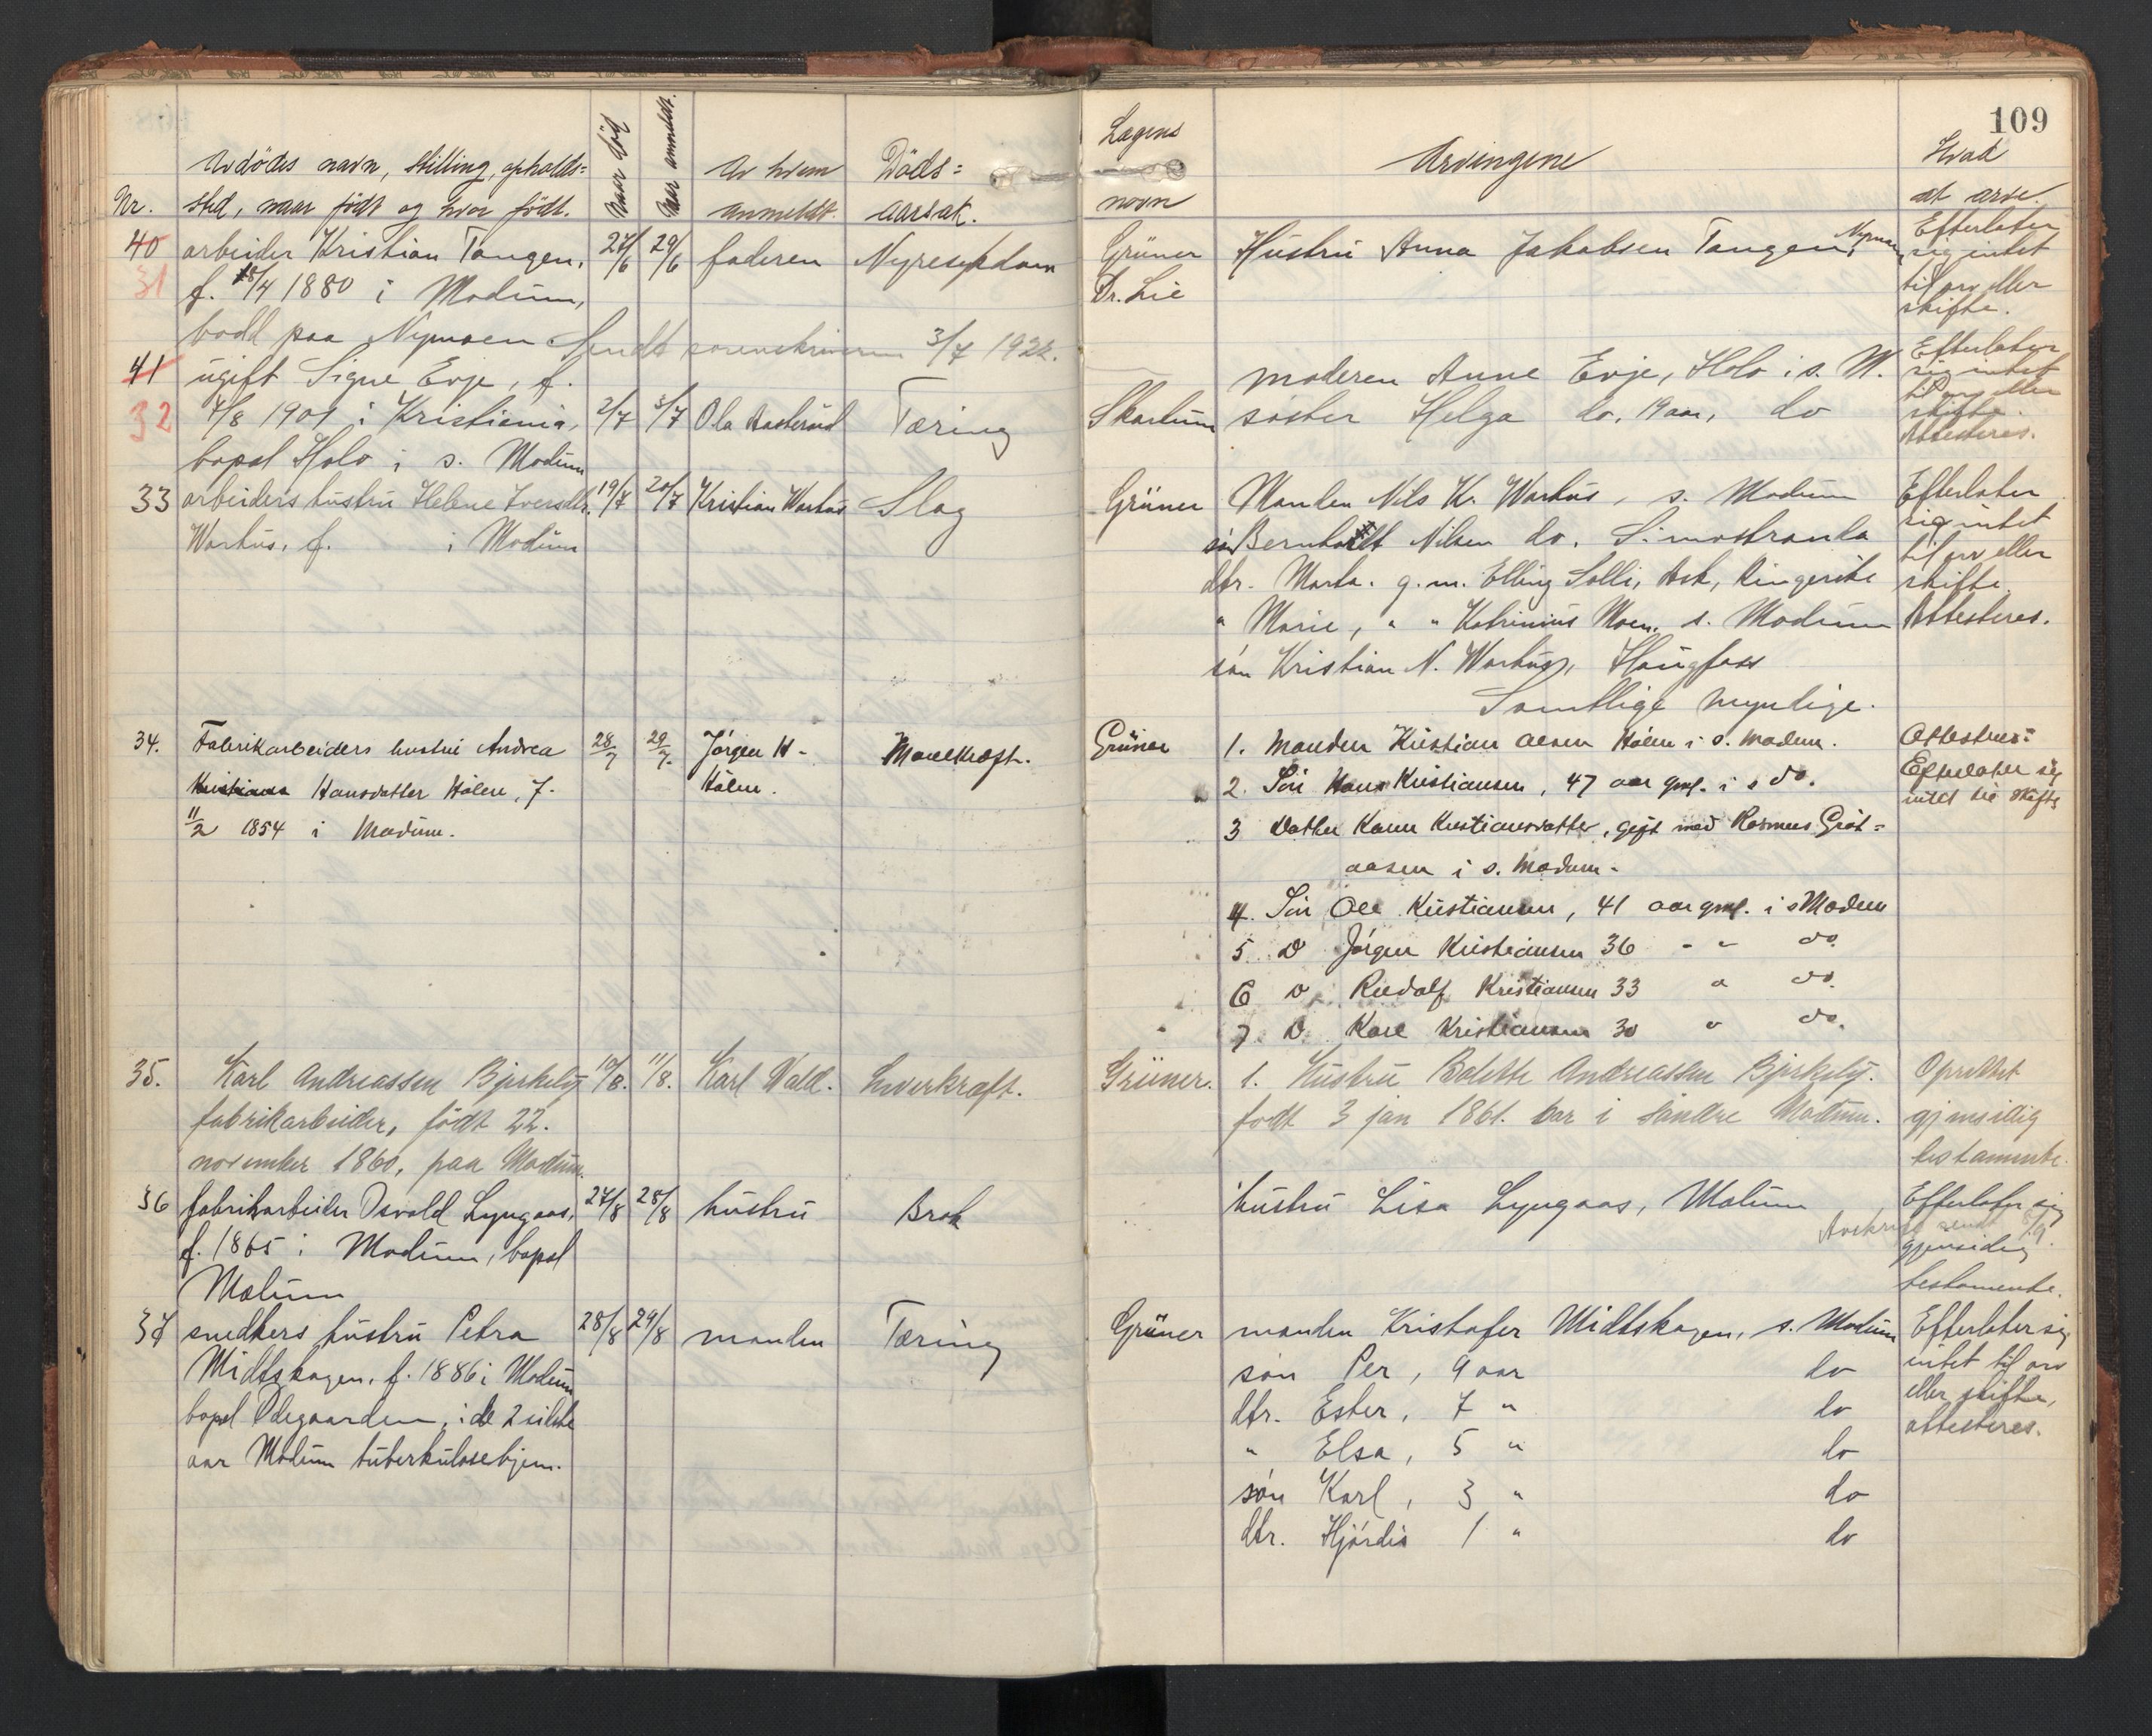 109
Nr.
Avdödes navn, stilling, opholds=
sted, naar født og hvor født.
Naar död
Naar anmeldt.
Av hvem
anmeldt.
Döds=
aarsak.
Lægens
navn
Arvingene
Hvad
at arve.
40
31
arbeider Kristian Tangen,
f. 18/4 1880 i Modum,
bodd paa Nymoen
27/6
29/6
faderen
Nyresykdom
Grüner
Dr. Lie
Hustru Anna Jakobsen Tangen, Nymoen
Efterlater
sig intet
til arv eller
skifte.
Sendt sorenskriveren 3/7 1922.
41
32
ugift Signe Evje, f.
7/8 1901 i Kristiania,
bopel Holo i s. Modum
2/7
3/7
Ola Aasterud
Tæring
Skartum
moderen Anne Evje, Holo i s. M.
søster Helga do. 19 aar, do
Efterlater
sig intet
til arv eller
skifte.
Attesteres.
33
arbeiders hustru Helene Iversdtr.
Warhus, f. i Modum
19/7
20/7
Kristian Warhus
Slag
Grüner
Manden Nils K. Warhus, s. Modum
søn Bernhardt Nilsen do. Simostranda
dtr. Marta. g.m. Elling Solli, Ask, Ringerike
" Marie, " " Katrinius Moen, s. Modum
søn Kristian N. Warhus, Haugfoss
Samtlige myndige.
Efterlater
sig intet
til arv eller
skifte
Attesteres.
34.
Fabrikarbeiders hustru Andrea
Hansdatter Hölen, f.
11/2 1854 i Modum.
28/7
29/7.
Jörgen H-
Hölen.
Mavekræft.
Grüner
1. Manden Kristian Olsen Hölen i s. Modum.
2. Sön Hans Kristiansen, 47 aar gml. i s do.
3 Datter Karen Kristiansdatter, gift med Rasmus Gröt=
aasen i s. Modum.
4. Sön Ole Kristiansen, 41 aar gml. i s Modum
5. D Jörgen Kristiansen 36 " " do.
6 D Rudolf Kristiansen 33 " do.
7. D. Karl Kristiansen 30 " do.
Attesteres:
Efterlater sig
intet til skifte
35.
Karl Andreassen Bjerkely
fabrikarbeider, født 22.
november 1860, paa Modum.
10/8.
11/8.
Karl Wald.
Leverkræft.
Grüner.
1. Hustru Bolette Andreassen Bjerkely.
født 3 jan 1861. bor i Søndre Modum.
Oprettet
gjensidig
testamente.
36
fabrikarbeider Osvald Lyngaas,
f. 1865 i Modum, bopel
Melum
27/8
28/8
hustru
Brok
hustru Lisa Lyngaas, Melum
Efterlater sig
Avskrift sendt 5/9.
gjensidig
testamente.
37
snedkers hustru Petra
Midtskogen, f. 1886 i Modum
bopel Ødegaarden, i de 2 sidste
aar Modum tuberkulosehjem.
28/8
29/8
manden
Tæring
Grüner
manden Kristofer Midtskogen, s. Modum
søn Per, 9 aar do
dtr. Ester, 7 " do
" Elsa, 5 " do
søn Karl, 3 " do
dtr. Hjördis 1 " do
Efterlater sig
intet til arv
eller skifte,
attesteres.